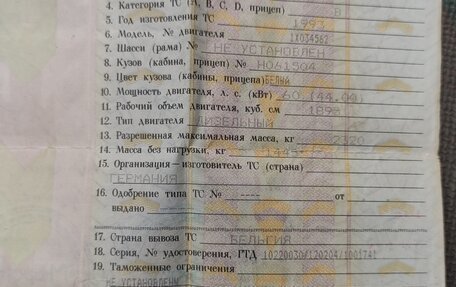 4. Категория ТС (А, В, С, D, прицеп) В
5. Год изготовления ТС 1993
6. Модель, № двигателя 1X034562
7. Шасси (рама) № НЕ УСТАНОВЛЕН
8. Кузов (кабина, прицеп) № H041504
9. Цвет кузова (кабины, прицепа) БЕЛЫЙ
10. Мощность двигателя, л. с. (кВт) 60 (44.00)
11. Рабочий объем двигателя, куб. см 1896
12. Тип двигателя ДИЗЕЛЬНЫЙ
13. Разрешенная максимальная масса, кг 2320
14. Масса без нагрузки, кг
15. Организация—изготовитель ТС (страна)
ГЕРМАНИЯ
16. Одобрение типа ТС № ---- от
выдано
17. Страна вывоза ТС БЕЛЬГИЯ
18. Серия, № удостоверения, ГТД 10220030/120204/1001741
19. Таможенные ограничения
НЕ УСТАНОВЛЕНЫ